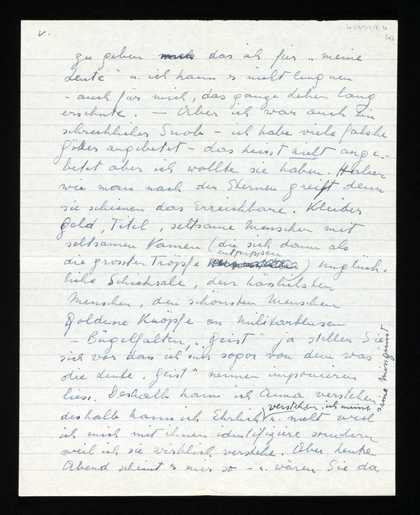 v.
zu geben das ich für „meine
Leute" u. ich kann s nicht leugnen
- auch für mich, das ganze Leben lang
ersehnte. — Aber ich war auch ein
schrecklicher Snob - ich habe viele falsche
götter angebetet - das heisst nicht ange-
betet aber ich wollte sie haben. Haben
wie man nach den Sternen greift denn
sie scheinen das Erreichbare. Kleider
geld, Titel, seltsame Menschen mit
seltsamen Namen (die sich dann als
die grossten Tröpfe entpuppten) unglück-
liche Schicksale, den hasslichsten
Menschen, den schönsten Menschen
goldene Knöpfe an Militärblusen
- Bügelfalten, „geist" ja stellen Sie
sich vor dass ich mir sogar von dem was
die Leute „geist" nennen imponieren
liess. Deshalb kann ich Anna verstehen,
deshalb kann ich Ehrlich verstehen, ich meine
s. nicht weil
ich mich mit ihnen identifiziere sondern
weil ich sie wirklich verstehe. Aber heute
Abend scheint s mir so - u. wären Sie da